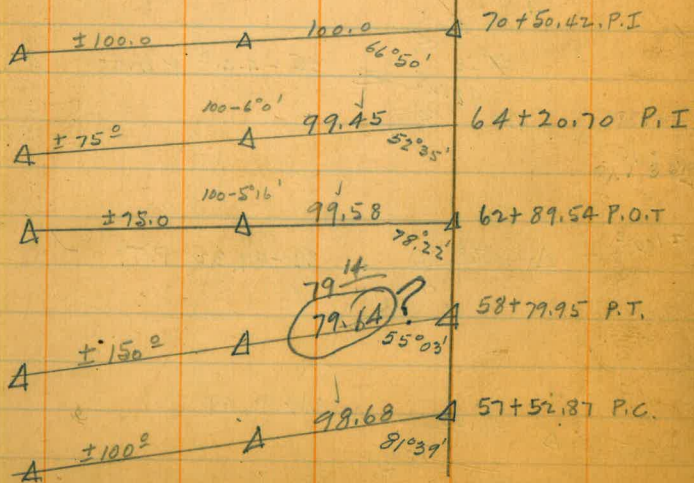 ±100.0 100.0 66°50' 70+50.42. P.I
100-6°0'
±75⁰ 99.45 52°35' 64+20.70 P.I
100-5°16'
±75.0 99.58 78°22' 62+89.54 P.O.T
79 14
±150⁰ 79.64 ? 55°03' 58+79.95 P.T.
±100⁰ 98.68 81°39' 57+52.87 P.C.